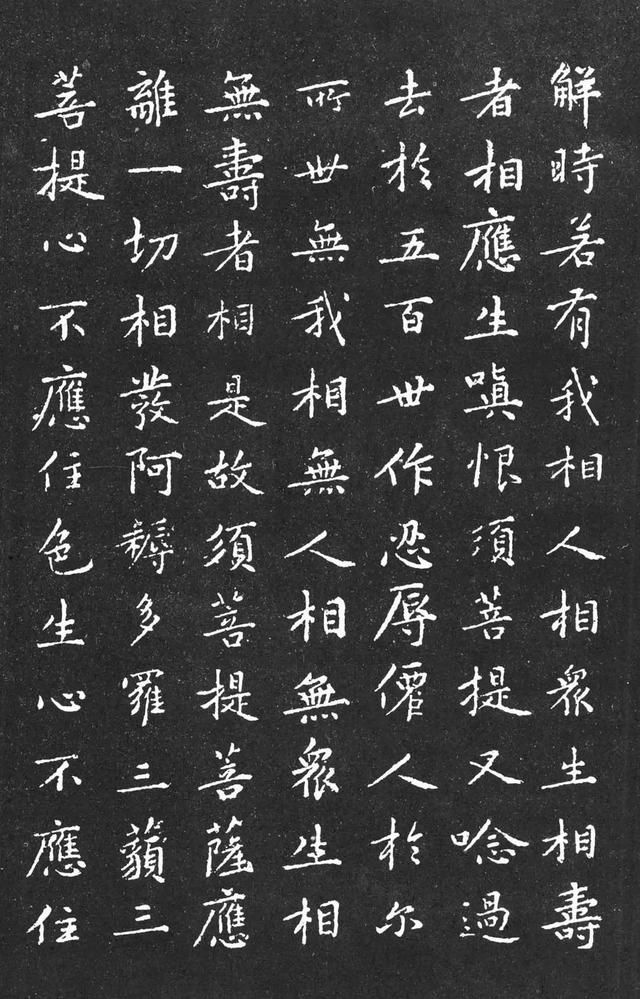 解時若有我相人相衆生相壽
者相應生嗔恨須菩提又念過
去於五百世作忍辱僊人於尔
所世無我相無人相無衆生相
無壽者相是故須菩提菩薩應
離一切相發阿耨多羅三藐三
菩提心不應住色生心不應住